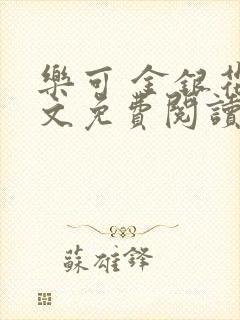 樂可 金銀花
文免費閱讀
蘇雄鋒